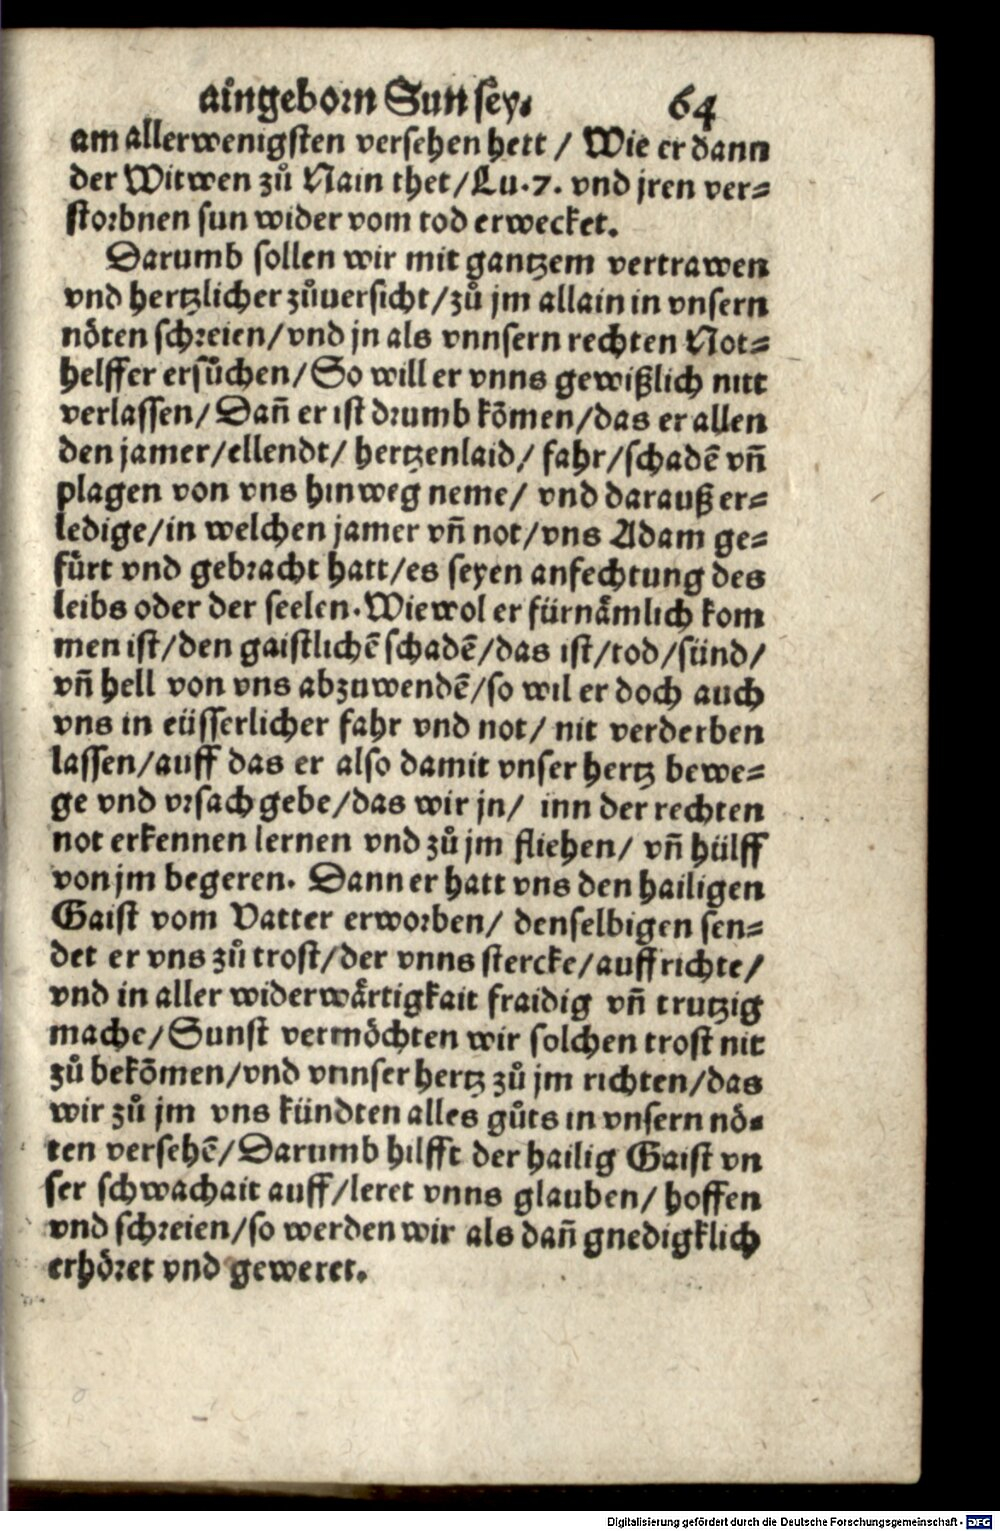 aingeborn Sun sey. 64
am allerwenigsten versehen hett / Wie er dann
der Witwen zů Nain thet / Lu. 7. vnd jren ver⸗
storbnen sun wider vom tod erwecket.
Darumb sollen wir mit gantzem vertrawen
vnd hertzlicher zůuersicht / zů jm allain in vnsern
nöten schreien / vnd jn als vnnsern rechten Not⸗
helffer ersůchen / So will er vnns gewißlich nitt
verlassen / Dañ er ist drumb kõmen / das er allen
den jamer / ellendt / hertzenlaid / fahr / schadẽ vñ
plagen von vns hinweg neme / vnd darauß er⸗
ledige / in welchen jamer vñ not / vns Adam ge⸗
fürt vnd gebracht hatt / es seyen anfechtung des
leibs oder der seelen. Wiewol er fürnämlich kom
men ist / den gaistlichẽ schadẽ / das ist / tod / sünd /
vñ hell von vns abzuwendẽ / so wil er doch auch
vns in eüsserlicher fahr vnd not / nit verderben
lassen / auff das er also damit vnser hertz bewe⸗
ge vnd vrsach gebe / das wir jn / inn der rechten
not erkennen lernen vnd zů jm fliehen / vñ hülff
von jm begeren. Dann er hatt vns den hailigen
Gaist vom Vatter erworben / denselbigen sen⸗
det er vns zů trost / der vnns stercke / auffrichte /
vnd in aller widerwärtigkait fraidig vñ trutzig
mache / Sunst vermöchten wir solchen trost nit
zů bekõmen / vnd vnnser hertz zů jm richten / das
wir zů jm vns kündten alles gůts in vnsern nö⸗
ten versehẽ / Darumb hilfft der hailig Gaist vn
ser schwachait auff / leret vnns glauben / hoffen
vnd schreien / so werden wir als dañ gnedigklich
erhöret vnd geweret.
Digitalisierung gefördert durch die Deutsche Forschungsgemeinschaft - DFG